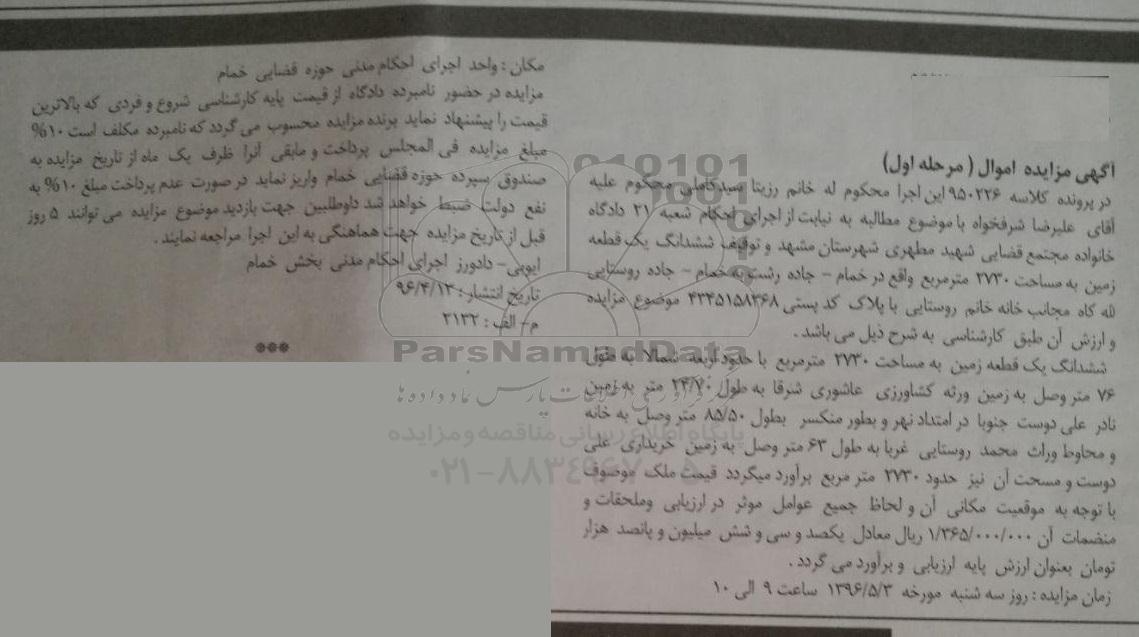 آگهی مزایده اموال ( مرحله اول)
در پرونده کلاسه ۹۵۰۲۲۶ این اجرا محکوم له خانم رزیتا سیدکاملی محکوم علیه
آقای علیرضا شرفخواه با موضوع مطالبه به نیابت از اجرای احکام شعبه ۲۱ دادگاه
خانواده مجتمع قضایی شهید مطهری شهرستان مشهد و توقیف ششدانگ یک قطعه
زمین به مساحت ۲۷۳۰ مترمربع واقع در خمام – جاده رشت به خمام – جاده روستایی
لله کاه مجانب خانه خانم روستایی با پلاک کد پستی ۴۳۴۵۱۵۸۳۶۸ موضوع مزایده
و ارزش آن طبق کارشناسی به شرح ذیل می باشد .
ششدانگ یک قطعه زمین به مساحت ۲۷۳۰ مترمربع با حدود اربعه شمالا به طول
۷۶ متر وصل به زمین ورثه کشاورزی عاشوری شرقا به طول ۲۴/۷۰ متر به زمین
نادر علی دوست جنوبا در امتداد نهر و بطور منکسر بطول ۸۵/۵۰ متر وصل به خانه
و محاوط وراث محمد روستایی غربا به طول ۶۳ متر وصل به زمین خریداری علی
دوست و مسحت آن نیز حدود ۲۷۳۰ متر مربع برآورد میگردد قیمت ملک موصوف
با توجه به موقعیت مکانی آن و لحاظ جمیع عوامل موثر در ارزیابی وملحقات و
منضمات آن ۱/۳۶۵/۰۰۰/۰۰۰ ریال معادل یکصد و سی و شش میلیون و پانصد هزار
تومان بعنوان ارزش پایه ارزیابی و برآورد می گردد .
زمان مزایده : روز سه شنبه مورخه ۱۳۹۶/۵/۳ ساعت ۹ الی ۱۰
مکان : واحد اجرای احکام مدنی حوزه قضایی خمام
مزایده در حضور نامبرده دادگاه از قیمت پایه کارشناسی شروع و فردی که بالاترین
قیمت را پیشنهاد نماید برنده مزایده محسوب می گردد که نامبرده مکلف است ۱۰%
مبلغ مزایده فی المجلس پرداخت و مابقی آنرا ظرف یک ماه از تاریخ مزایده به
صندوق سپرده حوزه قضایی خمام واریز نماید در صورت عدم پرداخت مبلغ ۱۰% به
نفع دولت ضبط خواهد شد داوطلبین جهت بازدید موضوع مزایده می توانند ۵ روز
قبل از تاریخ مزایده جهت هماهنگی به این اجرا مراجعه نمایند .
ایوبی– دادورز اجرای احکام مدنی بخش خمام
تاریخ انتشار : ۹۶/۴/۱۳
م– الف : ۲۱۳۲
***
ParsNamadData
پایگاه اطلاع رسانی مناقصه و مزایده